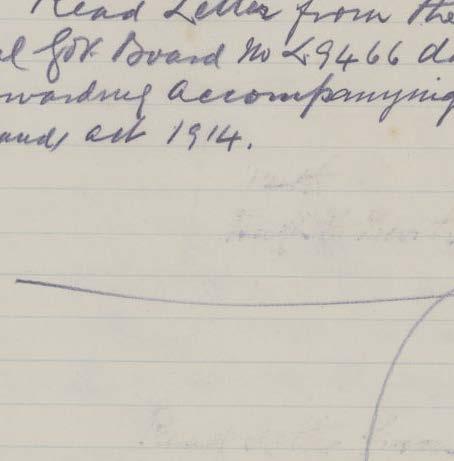 Read Letter from the
al Govt Board No L9466 d
rwarding accompanying
and, act 1914.